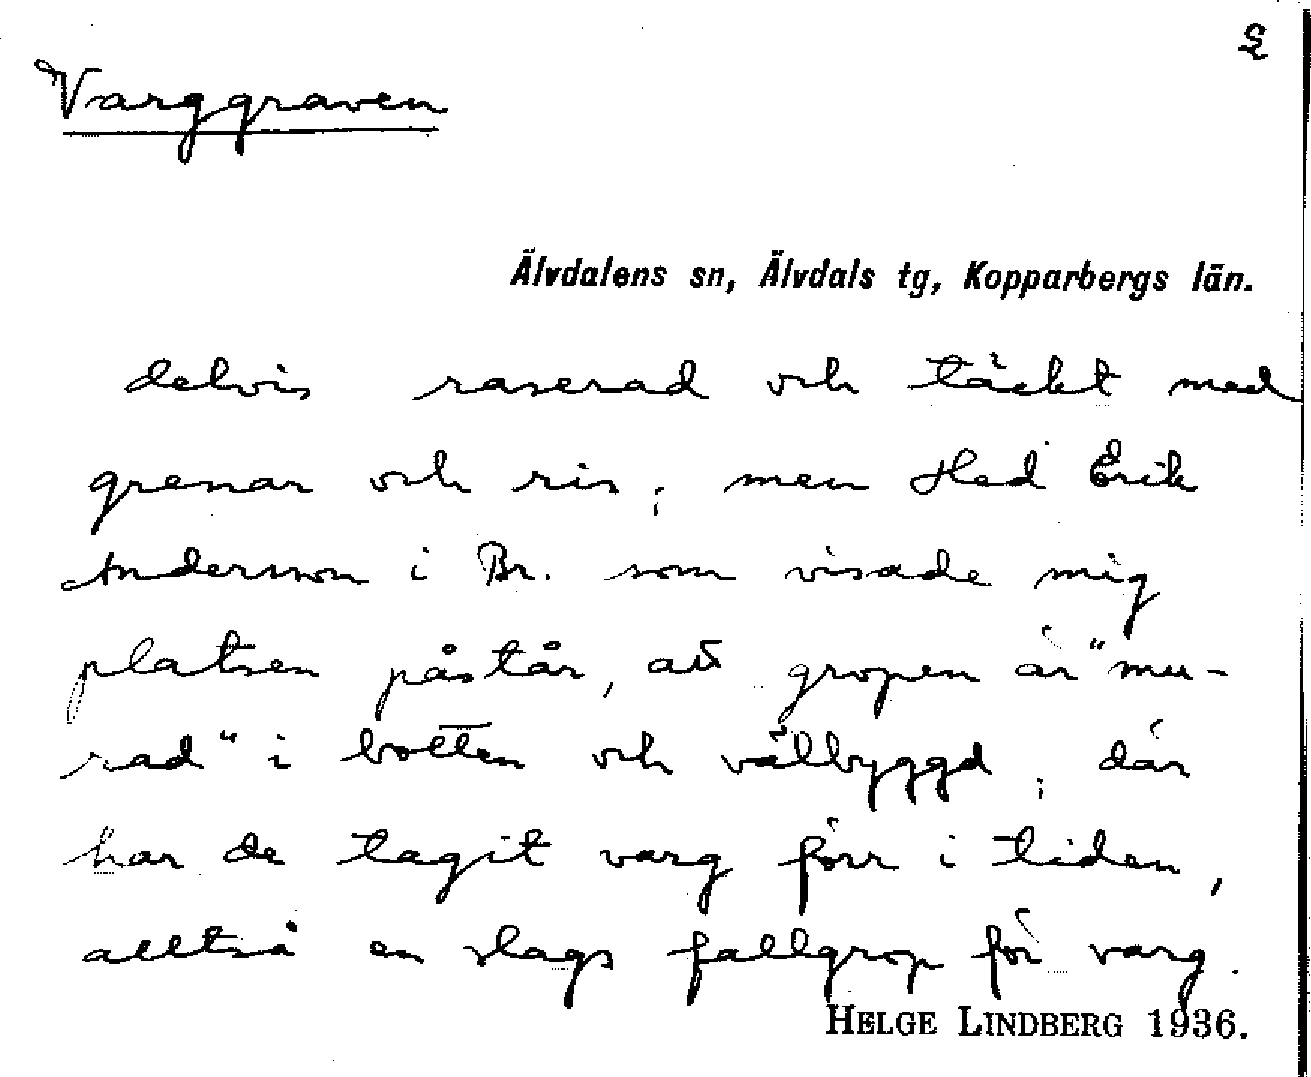 2
Varggraven
Älvdalens sn, Älvdals tg, Kopparbergs län.
delvis raserad och täckt med
grenar och ris; men Hed Erik
Andersson i Br. som visade mig
platsen påstår, att gropen är "mu-
rad" i botten och välbyggd; där
har de tagit varg förr i tiden,
alltså en slags fallgrop för varg.
HELGE LINDBERG 1936.